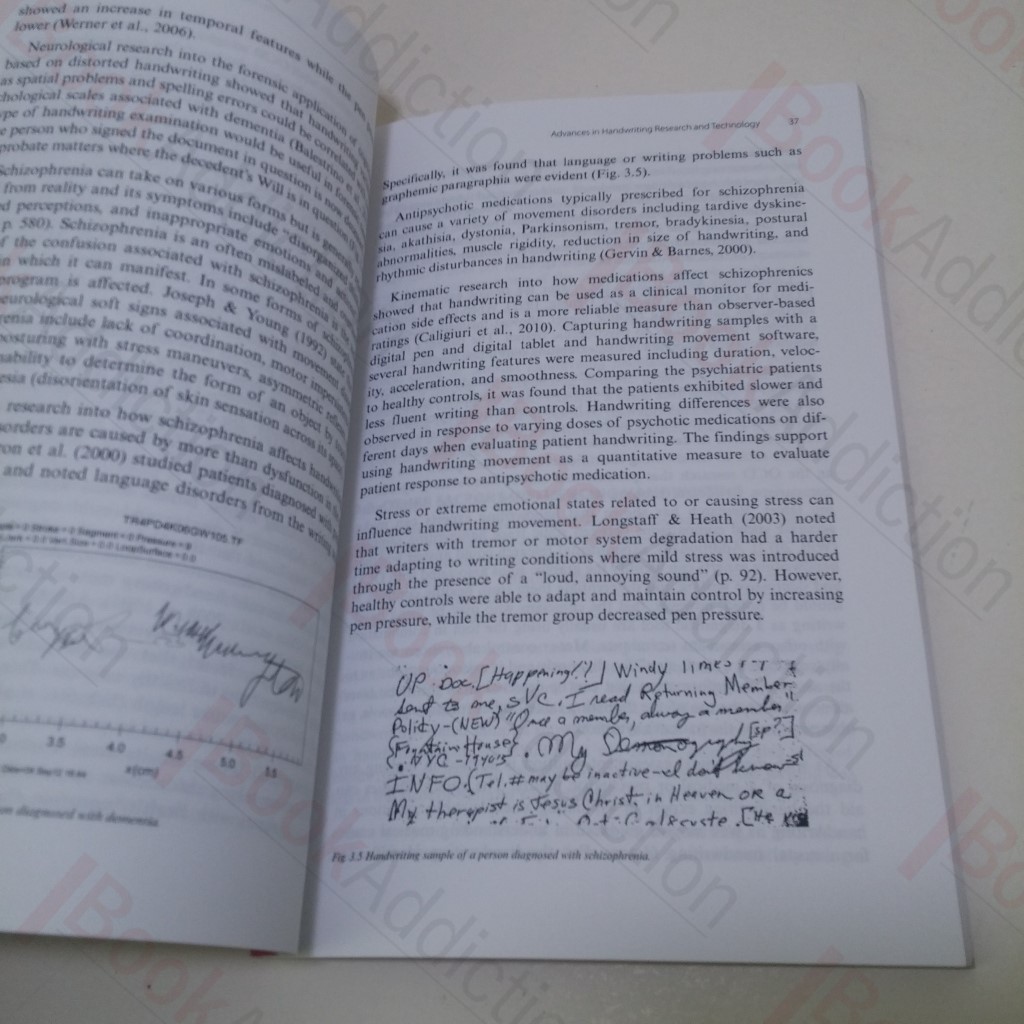 showed an increase in temporal features while the pen
lower (Werner et al., 2006).
Neurological research into the forensic application of
based on distorted handwriting showed that handwriting
as spatial problems and spelling errors could be correlated
chological scales associated with dementia (Balestrino et al.,
ype of handwriting examination would be useful in
e person who signed the document in question is now
probate matters where the decedent's Will is in question
Schizophrenia can take on various forms but is generally
from reality and its symptoms include "disorganized
d perceptions, and inappropriate emotions and
p. 580). Schizophrenia is an often mislabeled and
f the confusion associated with schizophrenia is the
in which it can manifest. In some forms of
program is affected. Joseph & Young (1992)
eurological soft signs associated with movement
renia include lack of coordination, motor
posturing with stress maneuvers, asymmetric
nability to determine the form of an object by
esia (disorientation of skin sensation across
research into how schizophrenia affects
sorders are caused by more than dysfunction
on et al. (2000) studied patients diagnosed with
and noted language disorders from the writing
3.5 4.0 4.5 5.0 5.5
x(cm)
diagnosed with dementia.
Advances in Handwriting Research and Technology 37
Specifically, it was found that language or writing problems such as
graphemic paragraphia were evident (Fig. 3.5).
Antipsychotic medications typically prescribed for schizophrenia
can cause a variety of movement disorders including tardive dyskine-
sia, akathisia, dystonia, Parkinsonism, tremor, bradykinesia, postural
abnormalities, muscle rigidity, reduction in size of handwriting, and
rhythmic disturbances in handwriting (Gervin & Barnes, 2000).
Kinematic research into how medications affect schizophrenics
showed that handwriting can be used as a clinical monitor for medi-
cation side effects and is a more reliable measure than observer-based
ratings (Caligiuri et al., 2010). Capturing handwriting samples with a
digital pen and digital tablet and handwriting movement software,
several handwriting features were measured including duration, veloc-
ity, acceleration, and smoothness. Comparing the psychiatric patients
to healthy controls, it was found that the patients exhibited slower and
less fluent writing than controls. Handwriting differences were also
observed in response to varying doses of psychotic medications on dif-
ferent days when evaluating patient handwriting. The findings support
using handwriting movement as a quantitative measure to evaluate
patient response to antipsychotic medication.
Stress or extreme emotional states related to or causing stress can
influence handwriting movement. Longstaff & Heath (2003) noted
that writers with tremor or motor system degradation had a harder
time adapting to writing conditions where mild stress was introduced
through the presence of a "loud, annoying sound" (p. 92). However,
healthy controls were able to adapt and maintain control by increasing
pen pressure, while the tremor group decreased pen pressure.
UP Doc. [Happening!?] Windy limes
sent to me, SVC. I read Returning Member
Polity-(NEW) "Once a member, always a member"
{Fountain House} . My [sp?]
NYC - 1940's
INFO. (Tel. # may be inactive - I don't know
My therapist is Jesus Christ in Heaven OR a
[He
Fig 3.5 Handwriting sample of a person diagnosed with schizophrenia.
BookAddiction